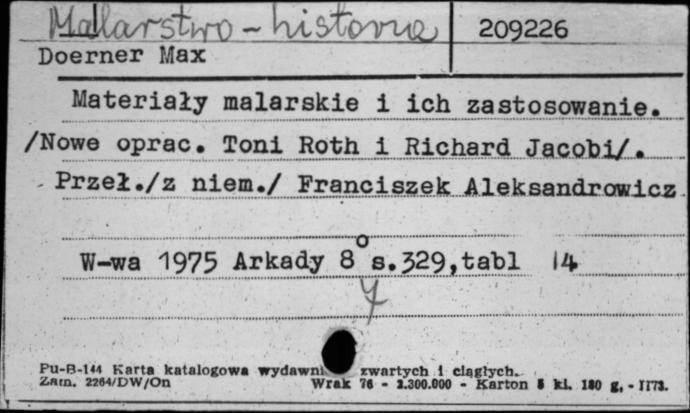 Malarstwo - historia 209226
Doerner Max
Materiały malarskie i ich zastosowanie.
/Nowe oprac. Toni Roth i Richard Jacobi/.
Przeł./z niem./ Franciszek Aleksandrowicz
W-wa 1975 Arkady 8° s.329,tabl 14
Pu-B-144 Karta katalogowa zwartych i ciągłych.
Zam. 2264/DW/On Wrak 76 - 3.300.000 - Karton kl. 180 g, - II73.